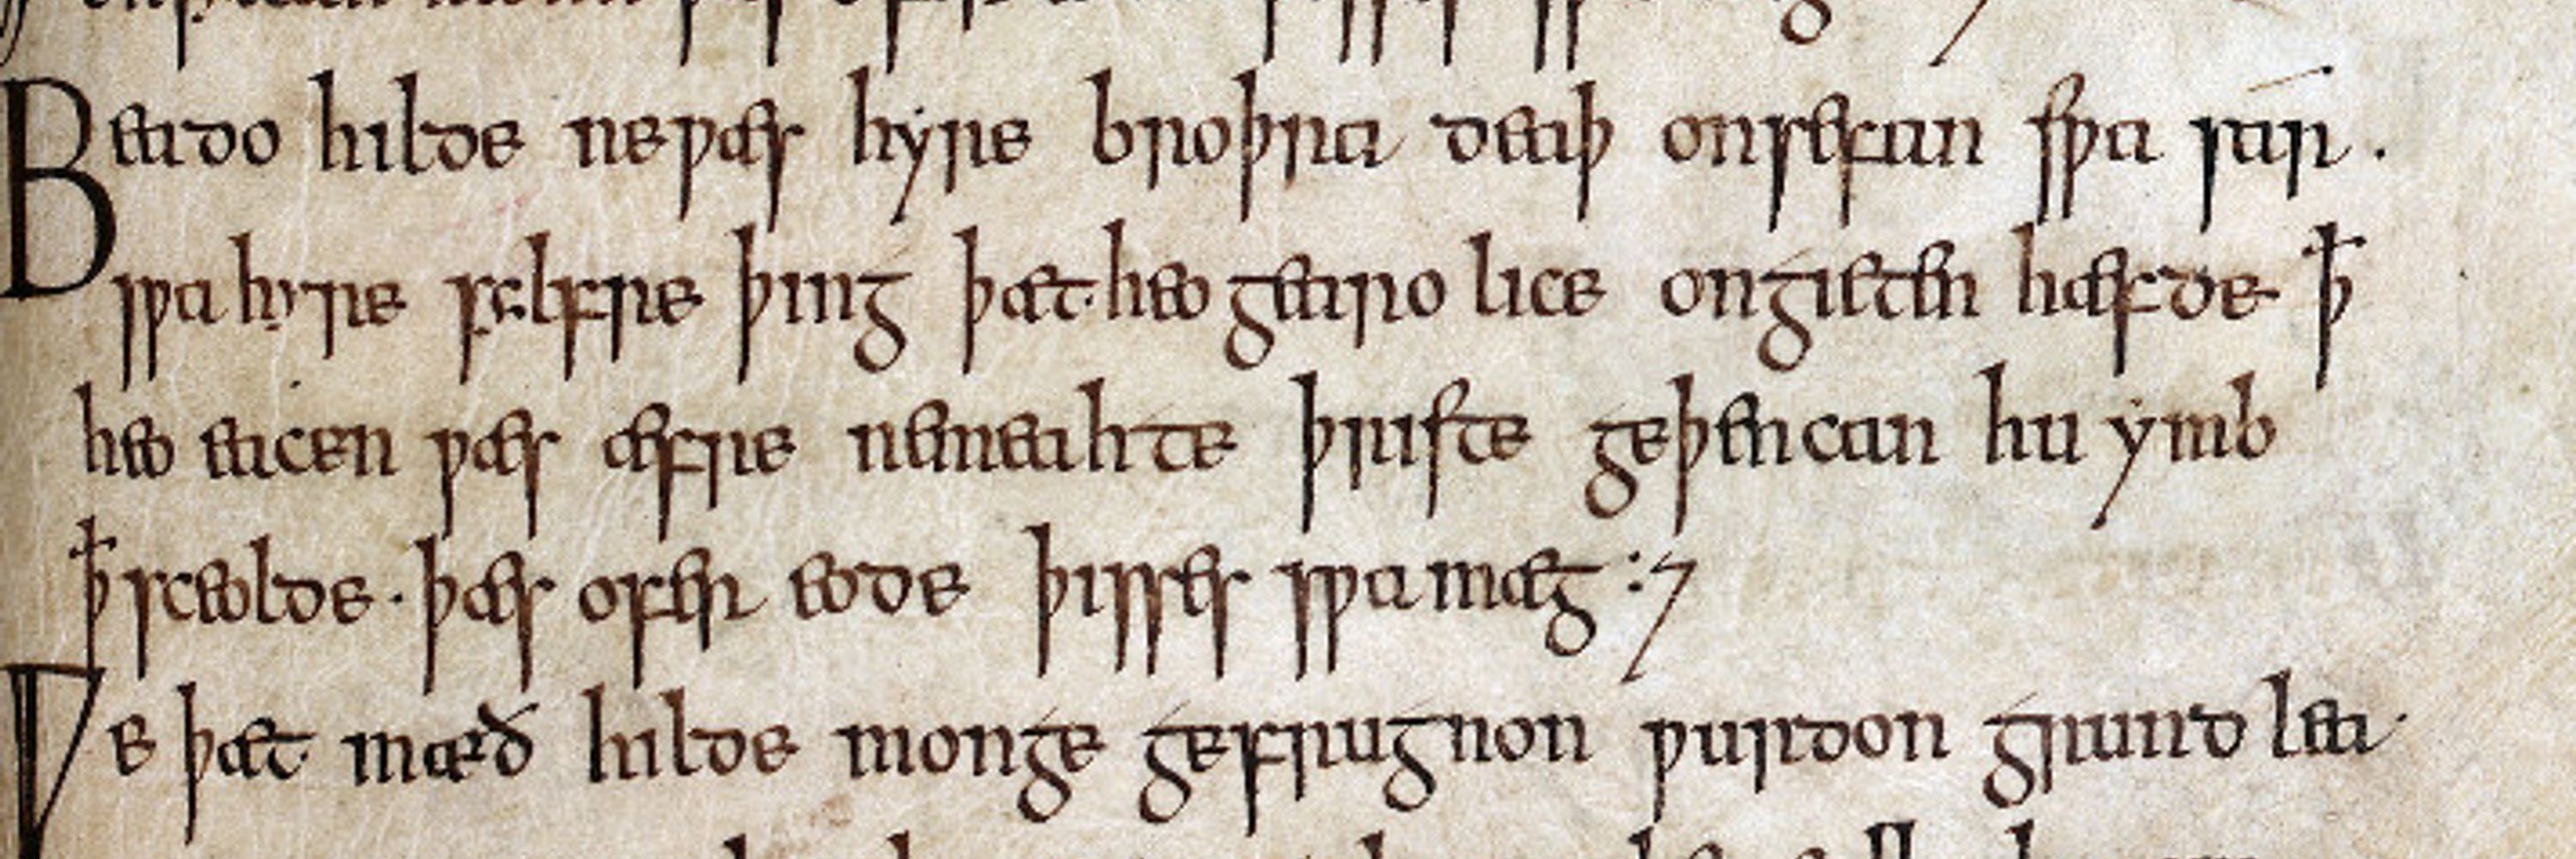 Beado hilde ne ƿæs hyre broþra deaþ on sefan sƿa sár·
sƿa hyre sylfre þing þæt heo gearo lice ongieten hæfde ꝥ
heo eacen ƿæs æfre ne meahte þriste geþencan hu ymb
ꝥ sceolde· þæs ofer eode þisses sƿa mæg :⁊
Ƿe þæt mæð hilde monge gefrugnon ƿurdon grund lea